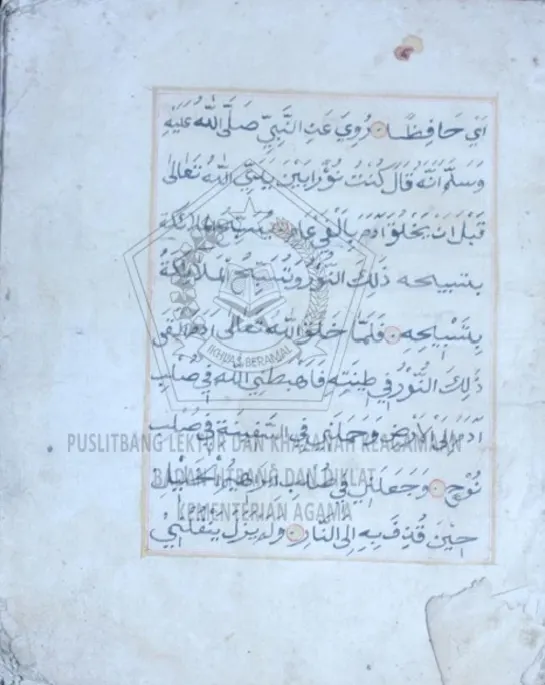 اَيْ حَافِظًا رُوِيَ عَنِ النَّبِيِّ صَلَّى اللهُ عَلَيْهِ
وَسَلَّمَ اَنَّهُ قَالَ كُنْتُ نُوْرًا بَيْنَ يَدَيِ اللهِ تَعَالٰى
قَبْلَ اَنْ يَخْلُقَ آدَمَ بِاَلْفَيْ عَامٍ يُسَبِّحُ
بتسبيحه ذَلِكَ النُّوْرُ وَتُسَبِّحُ الْمَلَائِكَةُ
بِتَسْبِيْحِهِ فَلَمَّا خَلَقَ اللهُ تَعَالٰى آدَمَ اَلْقَى
ذٰلِكَ النُّوْرَ فِي طِيْنَتِهِ فَاهْبَطَنِي اللهُ فِي صلب
آدَمَ اِلَى الْاَرْضِ وَحَمَلَنِي فِي السَّفِيْنَةِ فِي صُلْبِ
نُوْحٍ وَجَعَلَنِي فِي صُلْبِ الْخَلِيْلِ
حِيْنَ قُذِفَ بِهِ اِلَى النَّارِ وَلَمْ يَزَلْ يَنْقُلُنِيْ
IKHLAS BERAMAL
PUSLITBANG LEKTUR DAN KHAZANAH KEAGAMAAN
BADAN LITBANG DAN DIKLAT
KEMENTERIAN AGAMA